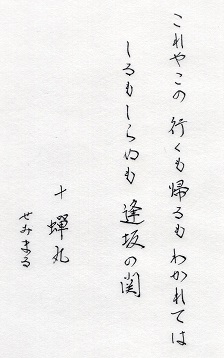 これやこの 行くも帰るも わかれては
しるもしらぬも 逢坂の関
十 蝉丸
せみまる